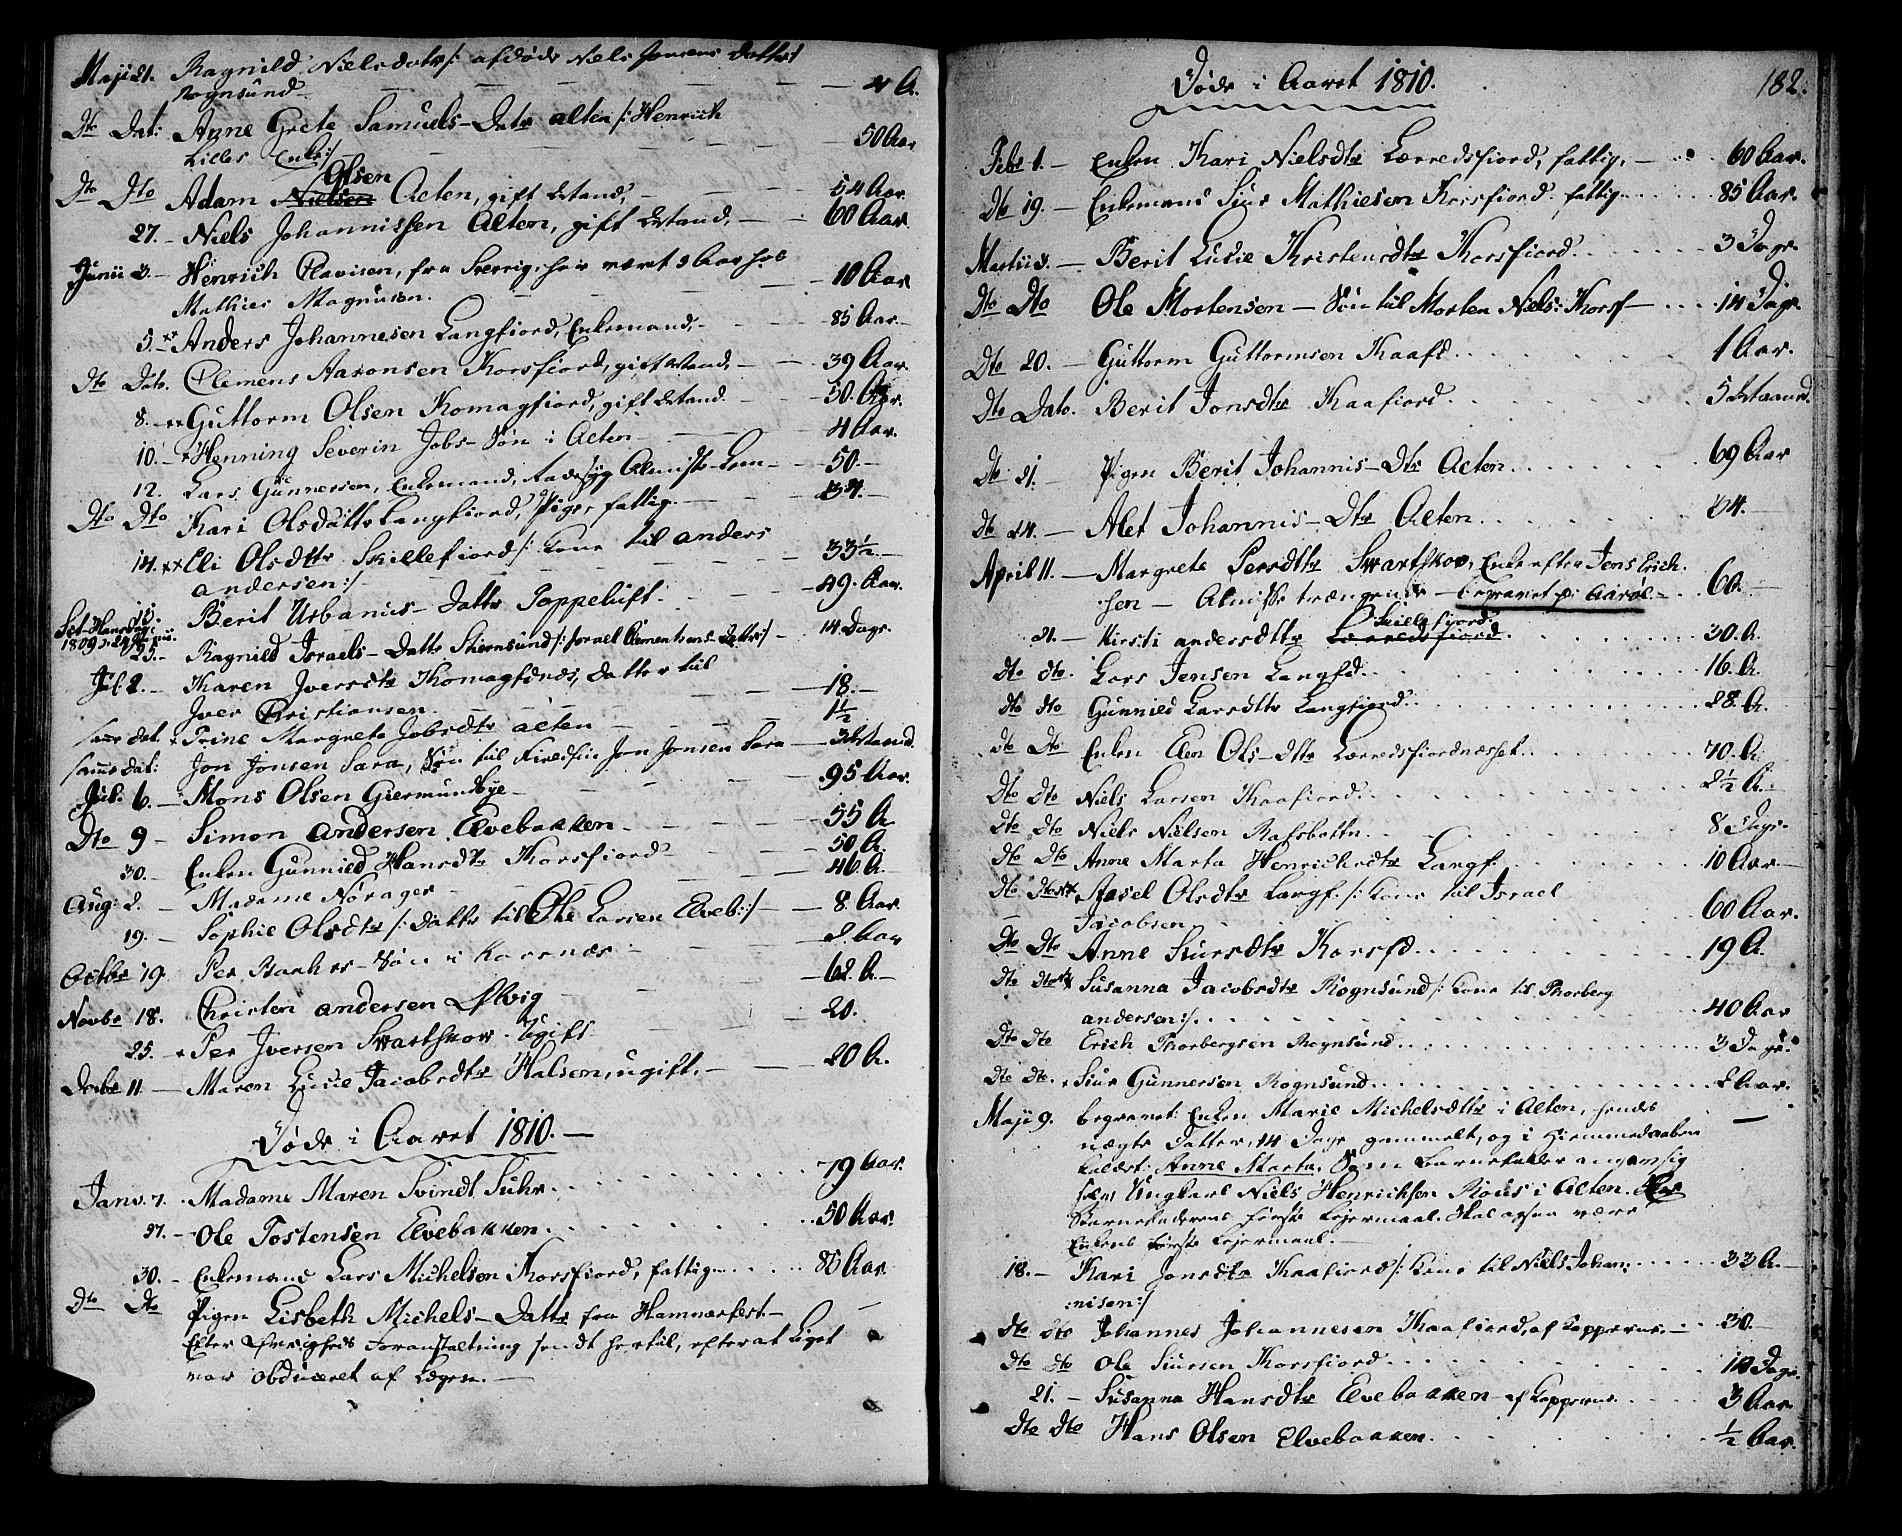 Maji 21. Ragnild Nielsdatr /: afdøde Niels Jonsens Datter
Rognsund — 2 A.
Dto Dat: Anne Grete Samuels-Datr Alten /: Henrich
Lilles Enke :/ — 50 Aar
Olsen
Dto Dto Adam Nielsen Alten, gift Estand, — 54 Aar.
27. – Niels Johannissen Alten, gift Estand, — 60 Aar.
Junii 3. – Henrich Clavisen, fra Sverrig, har været 2 Aar hos
Mathies Magnusen. — 10 Aar
5. – Anders Johannesen Langfiord, Enkemand, — 85 Aar.
Dto Dato. Clemens Aaronsen Korsfiord, gift Estand, — 39 Aar.
8. – Guttorm Olsen Komagfiord, gift Estand. — 50. Aar.
10. – Henning Severin Jobs-Søn i Alten — 4 Aar.
12. Lars Gunnersen, Enkemand, Almisse-Lem — 50. –
Dto Dto Kari Olsdattr Langfiord, Pige, fattig. — 34. –
14. Eli Olsdtr Skillefiord /: Kone til Anders
Andersen :/ — 33 1/2 –
15. Berit Urbanus-Dattr Toppeluft. — 49. Aar.
Sct. Hansdag
1809 d. 24 Junii.
25. – Ragnild Israels-Dattr Stiernsund /: Israel Clementsens Datter :/ — 14 Dage.
Jul. 2. – Karen Iversdtr Komagfdnæs, Datter til
Iver Christiansen. — 18. –
samme dat. Trine Margrete Jobsdtr Alten — 1 1/2
samme dat: Jon Jonsen Sara, Søn til Jon Jonsen Sara — 3 Estaand.
Jul. 6. – Mons Olsen Giermundbye — 95 Aar.
Dto 9 – Simon Andersen Elvebakken. — 55 A.
30. – Enken Gunnild Hansdtr Korsfiord — 50 A.
Aug: 2. – Madame Norager — 46 A.
19. – Sophie Olsdtr /: Datter til Ole Larsen Elveb: :/ — 8. Aar.
Octbr 19. Per — Søn i — 2. Aar
Novbr 18. Christen Andersen — 62. A. –
25. Per Iversen Svartskov. Ugift — 20.
Decbr 11 — Maren Lucie Jacobsdtr Halsen, ugift. — 20 A.
Døde i Aaret 1810. —
Janv. 7. Madame Maren Svindt Suhr. 79 Aar.
27. – Ole Tostensen Elvebakken. 50 Aar.
30. – Enkemand Lars Michelsen Korsfiord, fattig. 86 Aar.
Dto Dto Pigen Lisbeth Michels-Datter fra Hammerfest —
Efter Øvrigheds Foranstaltning sendt hertil, efterat Liget
var obduceret af Lægen. —
Døde i Aaret 1810. 182.
Febr 1. – Enken Kari Nielsdtr Lerredsfiord, fattig. — 60 Aar.
Dto 19. – Enkemand Siur Mathiesen Korsfiord fattig. 85 Aar.
Martii 3. – Berit Lucie Kristensdtr Korsfiord. 3 Dage.
Dto Dto Ole Mortensen – Søn til Morten Niels: Korsf — 14 Dage.
Dto 20. – Guttorm Guttormsen Kaafd. 1 Aar.
Dto Dato. Berit Jonsdtr Kaafiord. 5 Estaand.
Dto 21. – Pigen Berit Johannis-Dtr Alten. 69 Aar
Dto 24. – Alet Johannis-Dtr Alten. 24. –
April 11. – Margrete Persdtr Svartskov, Enke efter Jens Erich-
sen – Almisse trængende – begravet paa Aarøe. 60. –
Skillefiord
21. – Kirsti Andersdtr Lerredsfiord 30. A.
Dto Dto. Lars Jensen Langfd. 16. A.
Dto Dto Gunnild Larsdtr Langfiord. 28. A.
Dto Dto Enken Elen Ols-Dtr Lerredsfiordnæsset. 70. A.
Dto Dto Niels Larsen Kaafiord. 2 1/2 A.
Dto Dto Niels Nielsen Rafsbotn. 8 Dage.
Dto Dto Anne Marta Henrichsdtr Langf: 10 Aar. —
Dto Dto Assel Olsdtr Langf. /: Kone til Israel
Jacobsen 60 Aar.
Dto Dto Anne Siursdtr Korsfd. 19 A.
Dto Dto Susanna Jacobsdtr Rognsund /: Kone til Thorberg
Andersen :/. 40 Aar
Dto Dto Erich Thorbergsen Rognsund. 3 Dage.
Dto Dto. Siur Gunnersen Rognsund. 2 Aar.
Maji 9. begravet: Enken Marie Michelsdtr i Alten, hendes —
uægte Datter, 14 Dage gammelt, og i Hiemmedaaben
kaldet: Anne Marta. Som Barnefader angav sig
selv Ungkarl Niels Henrichsen i Alten. Er
Barnefaderens første Leiermaal. Skal ogsaa være
Enkens første Leiermaal. —
18. – Kari Jonsdtr Kaafiord /: Kone til Niels Johan- 33 A. –
nisen :/
Dto Dto Johannes Johannesen Kaafiord, af Kopperne. — 30. –
Dto Dto Ole Siursen Korsfiord. 12 Dage.
21. – Susanna Hansdtr Elvebakken af Kopperne. 3 Aar
Dto Dto Hans Olsen Elvebakken. 1/2 Aar.